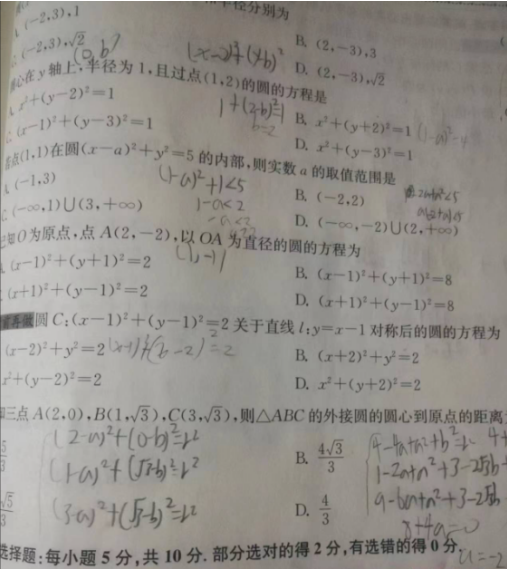 半径分别为
(-2,3),1
B. (2,-3),3
(-2,3),√2
D. (2,-3),√2
(0,b)
(x-0)²+(y-b)²
心在y轴上,半径为1,且过点(1,2)的圆的方程是
x²+(y-2)²=1
1+(2-b)²=1
b=2
B. x²+(y+2)²=1
(x-1)²+(y-3)²=1
D. x²+(y-3)²=1
点(1,1)在圆(x-a)²+y²=5的内部,则实数a的取值范围是
(-1,3)
(1-a)²+1<5
B. (-2,2)
C. (-∞,1)∪(3,+∞)
1-a<2
-a<2
D. (-∞,-2)∪(2,+∞)
知O为原点,点A(2,-2),以OA为直径的圆的方程为
(1,-1)
(x-1)²+(y+1)²=2
B. (x-1)²+(y+1)²=8
(x+1)²+(y-1)²=2
D. (x+1)²+(y-1)²=8
圆C:(x-1)²+(y-1)²=2关于直线l:y=x-1对称后的圆的方程为
(x-2)²+y²=2
B. (x+2)²+y²=2
x²+(y-2)²=2
D. x²+(y+2)²=2
三点A(2,0),B(1,√3),C(3,√3),则△ABC的外接圆的圆心到原点的距离
(2-a)²+(0-b)²=r²
B. 4√3/3
4-4a+a²+b²=r²
(1-a)²+(√3-b)²=r²
1-2a+a²+3-2√3b
(3-a)²+(√3-b)²=r²
D. 4/3
9-6a+a²+3-2√3b
选择题:每小题5分,共10分.部分选对的得2分,有选错的得0分.
a=-2